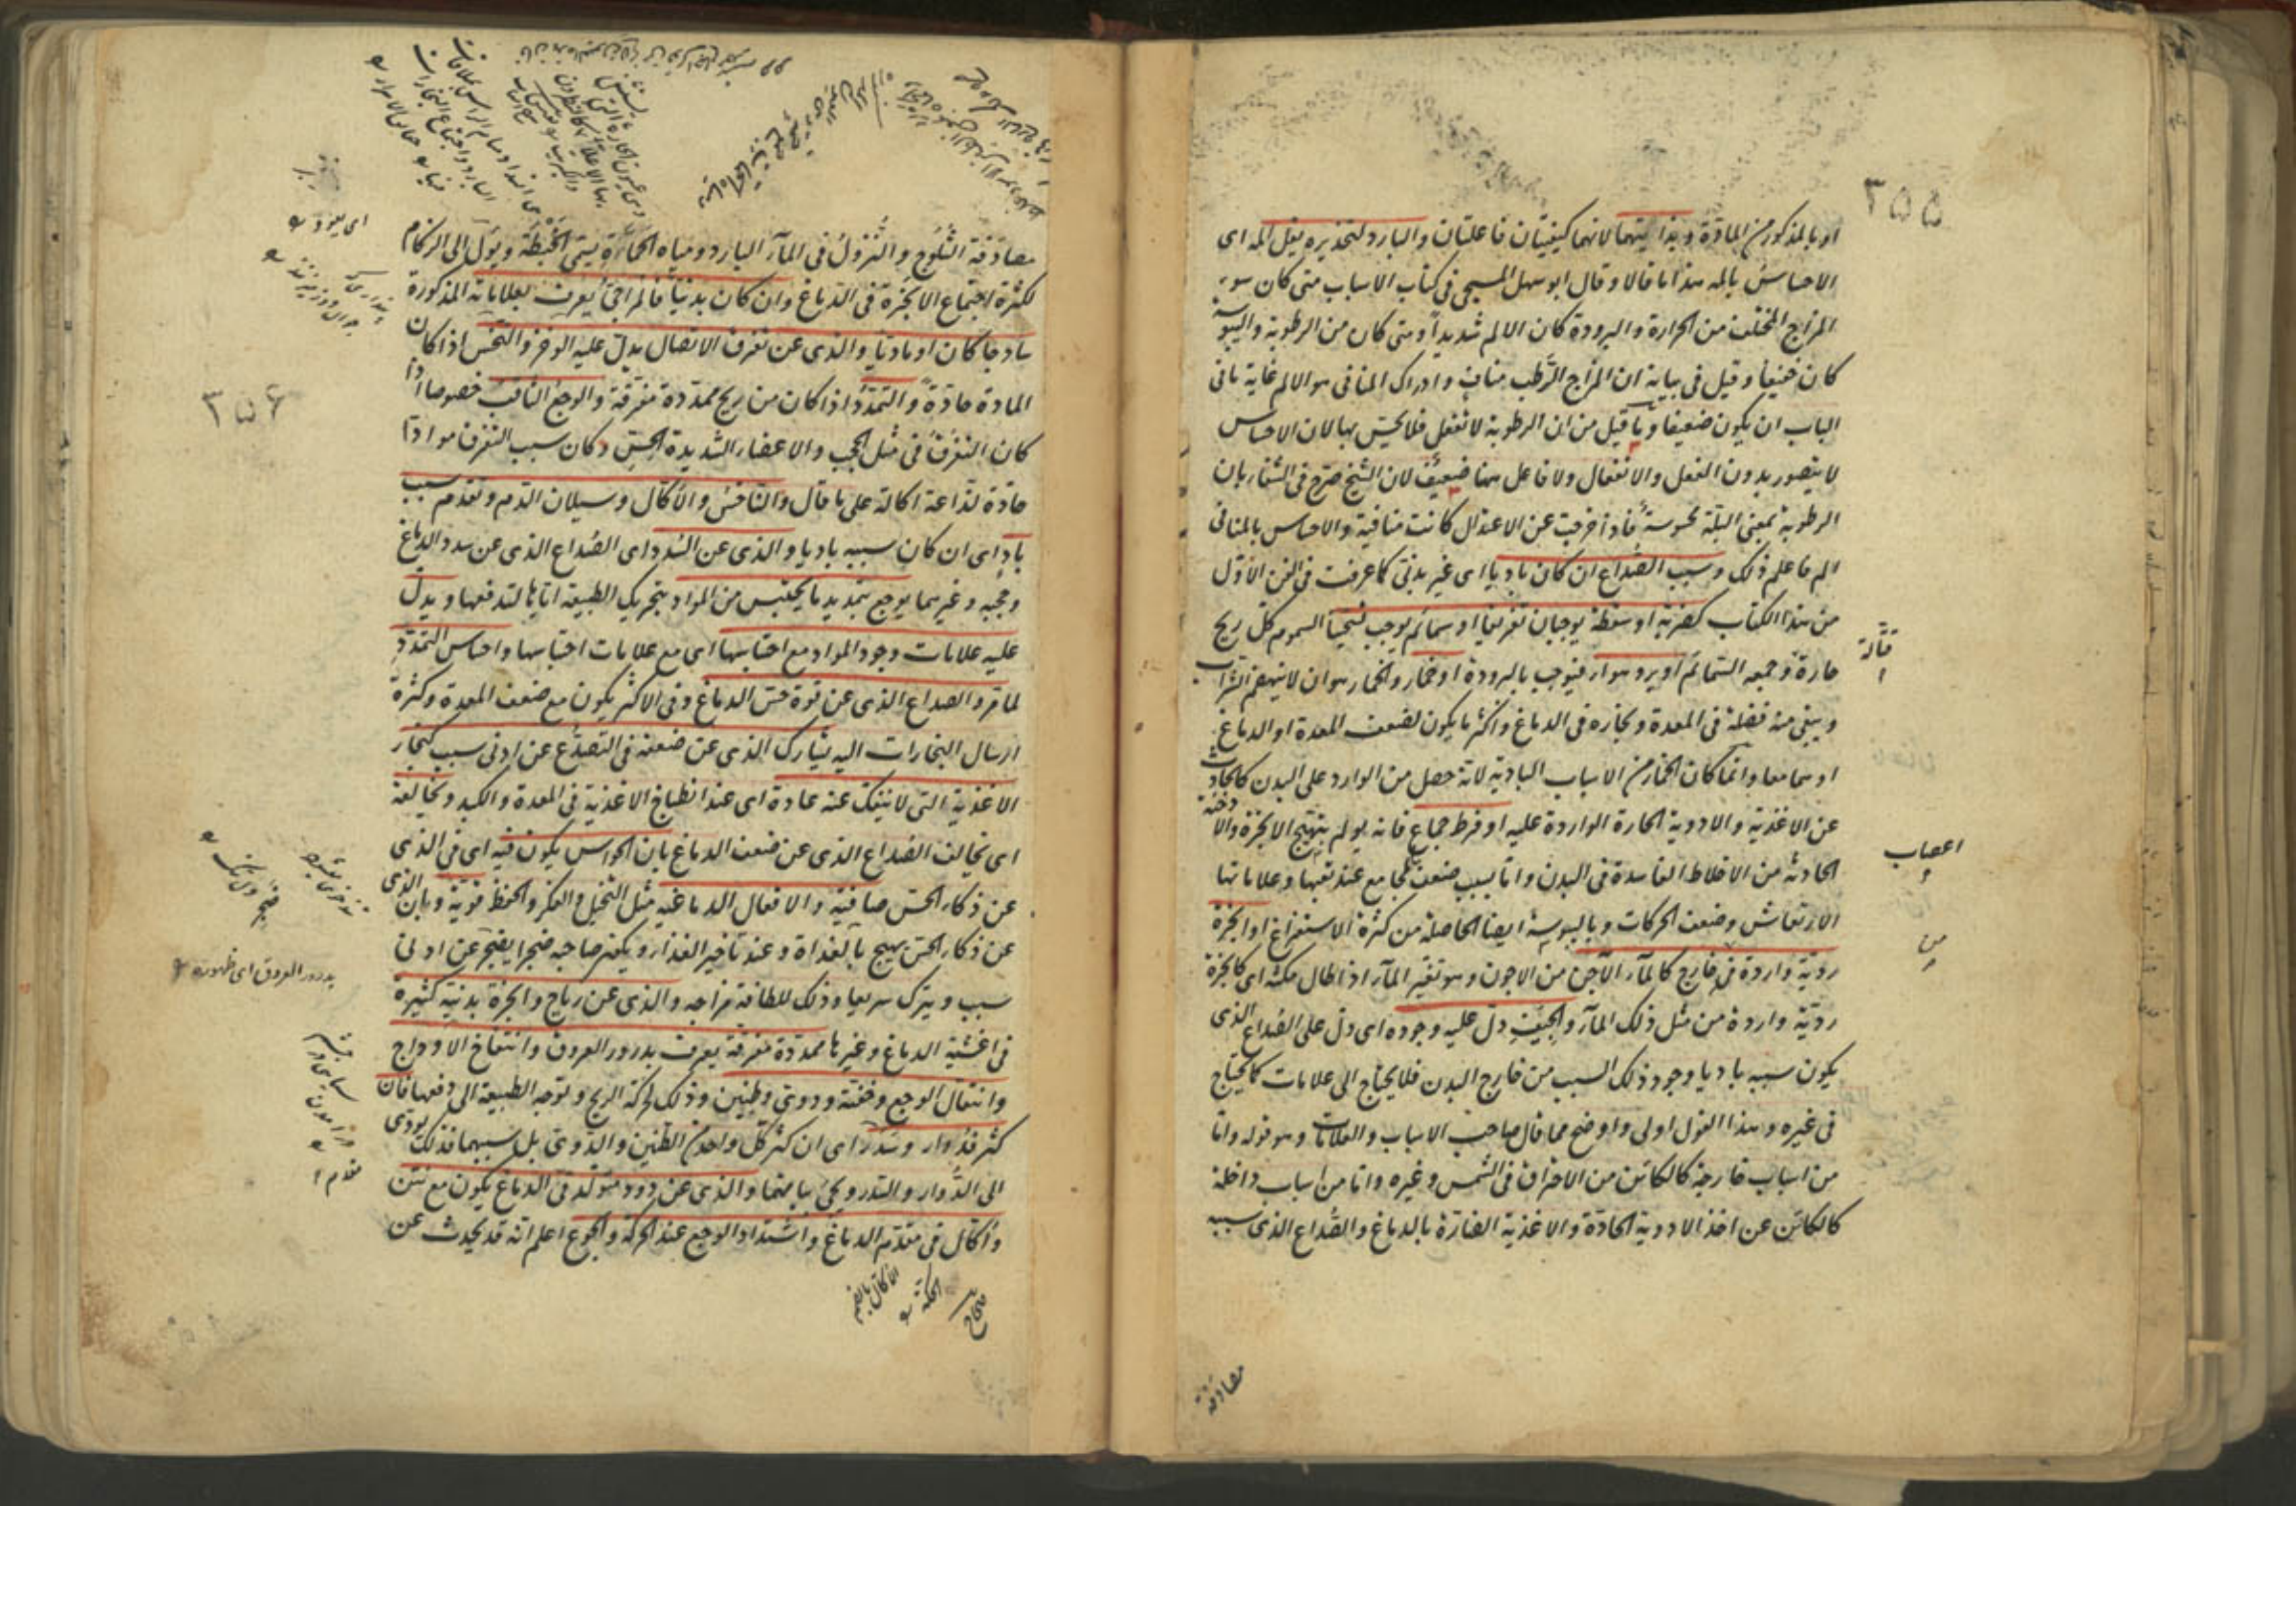 ٣٥٥
او بالمذكور من المادة وبذاتيتهما لانهما كيفيتان فاعلتان والبارد لتخذيره يقل المه اى
الاحساس بالمه هذا ما قالا وقال ابو سهل المسيحى فى كتاب الاسباب متى كان سوء
المزاج المختلف من الحرارة والبرودة كان الالم شديداً ومتى كان من الرطوبة واليبوسة
كان خفيفا وقيل فى بيانه ان المزاج الرطب مناف وادراك المنافى هو الالم غاية ما فى
الباب ان يكون ضعيفا وما قيل من ان الرطوبة لا تفعل فلا يحس بها لان الاحساس
لا يتصور بدون الفعل والانفعال ولا فاعل ههنا ضعيف لان الشيخ صرح فى الشفاء بان
الرطوبة بمعنى البلة محسوسة فاذا خرجت عن الاعتدال كانت منافية والاحساس بالمنافى
الم فاعلم ذلك وسبب الصداع ان كان باديا اى غير بدنى كما عرفت فى الفن الاول
من هذا الكتاب كضربة او سقطة يوجبان تفرقا او سمائم يوجب تسخينا السموم كل ريح
حارة وجمعه السمائم او برد هواء فيوجب بالبرودة او خمار والخمار هو ان لا ينهضم الشراب
ويبقى منه فضلة فى المعدة وبخاره فى الدماغ واكثر ما يكون لضعف المعدة او الدماغ
او هما معا وانما كان الخمار من الاسباب البادية لانه حصل من الوارد على البدن كالحادث
عن الاغذية والادوية الحارة الواردة عليه او فرط جماع فانه يولم بتهييج الابخرة والادخنة
الحادثة من الاخلاط الفاسدة فى البدن واما بسبب ضعف المجامع عند تعبها وعلاماتها
الارتعاش وضعف الحركات وباليبوسة ايضا الحاصلة من كثرة الاستفراغ او ابخرة
ردية واردة فى خارج كالماء الآجن من الاجون وهو تغير الماء اذا طال مكثه اى كابخرة
ردية واردة من مثل ذلك الماء والجيف دل عليه وجوده اى دل على الصداع الذى
يكون سببه باديا وجود ذلك السبب من خارج البدن فلا يحتاج الى علامات كما يحتاج
فى غيره وهذا القول اولى واوضح مما قال صاحب الاسباب والعلامات وهو قوله واما
من اسباب خارجة كالكائن من الاحتراق فى الشمس وغيره واما من اسباب داخلة
كالكائن عن اخذ الادوية الحادة والاغذية الضارة بالدماغ والصداع الذى سببه
قتالة
اعصاب
من
مصادفة
٣٥٦
مصادفة الثلوج والنزول فى الماء البارد ومياه الحمأة يسمى الخبطة ويول الى الزكام
لكثرة اجتماع الابخرة فى الدماغ وان كان بدنيا فالمزاجى يعرف بعلاماته المذكورة
ساذجا كان او ماديا والذى عن تفرق الاتصال يدل عليه الوخز والنخس اذا كان
المادة حادة والتمدد اذا كان من ريح ممددة مفرقة والوجع الثاقب خصوصا اذا
كان التفرق فى مثل الحجب والاعضاء الشديدة الحس وكان سبب التفرق موادا
حادة لذاعة اكالة على ما قال والناخس والاكال وسيلان الدم وتقدم سبب
باد اى ان كان سببه باديا والذى عن السدد اى الصداع الذى عن سدد الدماغ
وحجبه وغيرهما يوجع بتمديد ما يحتبس من المواد بتحريك الطبيعة اياها لتدفعها ويدل
عليه علامات وجود المواد مع احتباسها اى مع علامات احتباسها واحساس التمدد
لما مر والصداع الذى عن قوة حس الدماغ وفى الاكثر يكون مع ضعف المعدة وكثرة
ارسال البخارات اليه يشارك الذى عن ضعفه فى التصدع عن ادنى سبب كبخار
الاغذية التى لا ينفك عنه عادة اى عند انطباخ الاغذية فى المعدة والكبد ويخالفه
اى يخالف الصداع الذى عن ضعف الدماغ بان الحواس يكون فيه اى فى الذى
عن ذكاء الحس صافية والافعال الدماغية مثل التخيل والفكر والحفظ قوية وبان الذى
عن ذكاء الحس يهيج بالغداة وعند تأخير الغذاء ويكون صاحبه ضجرا يضجر عن ادنى
سبب ويترك سريعا وذلك للطافة مزاجه والذى عن رياح وابخرة بدنية كثيرة
فى اغشية الدماغ وغيرها ممددة مفرقة يعرف بدرور العروق وانتفاخ الاوداج
وانتقال الوجع وخفته ودوى وطنين وذلك لحركة الريح وتوجه الطبيعة الى دفعها فان
كثر فدوار وسدر اى ان كثر كل واحد من الطنين والدوى بل سببهما فذلك يودى
الى الدوار والسدر ويجئ بيانهما والذى عن دود متولد فى الدماغ يكون مع نتن
واكال فى مقدم الدماغ واشتداد الوجع عند الحركة والجوع اعلم انه قد يحدث عن
اى يعود
بدرور العروق اى ظهوره
الاكال بالضم
الحكة
صحاح
مقدم